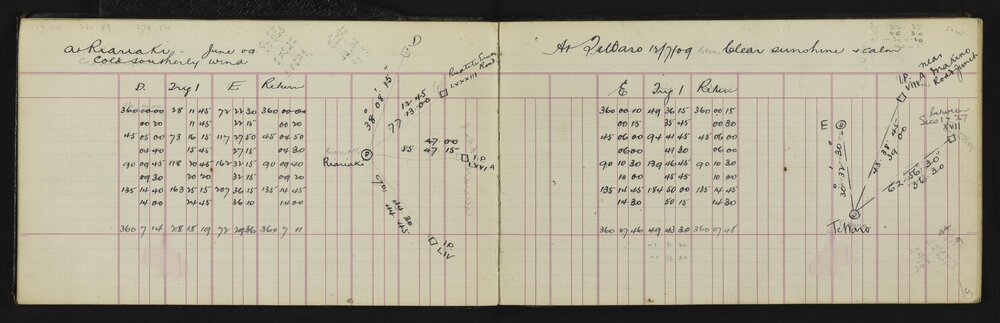 At Riariaki - June 09
Cold southerly wind
D. Trig 1 E Return
360 00 00 28 11 45 72 22 30 360 00 00
00 20 11 45 22 15 00 20
45 05 00 73 16 15 117 27 50 45 04 50
04 40 15 45 27 15 04 30
90 09 45 118 20 45 162 32 15 90 09 40
09 30 20 20 32 15 09 20
135 14 40 163 25 15 207 36 15 135 14 45
14 00 24 45 36 10 14 00
360 7 14 28 18 19 72 29 36 360 7 11
D
38° 08' 15"
77 12 45
13 00
LXXXIII
Riariaki
85 47 00
47 15
I.P.
LXVI A
44 30
44 45
I.P.
LIV
At 12/7/09 Clear sunshine & calm
E Trig 1 Return
360 00 10 49 36 15 360 00 15
00 15 35 45 00 30
45 06 00 94 41 45 45 06 00
06 00 41 30 06 00
90 10 30 139 46 45 90 10 30
10 00 45 45 10 00
135 14 45 184 50 00 135 14 45
14 30 50 15 14 30
360 07 46 49 43 30 360 07 48
E
30° 32' 30"
43 38 45
39 00
I.P.
VIII A
near
Makino
Road Junct
between
Secs 1 & 27
XVII
62 36 30
36 30